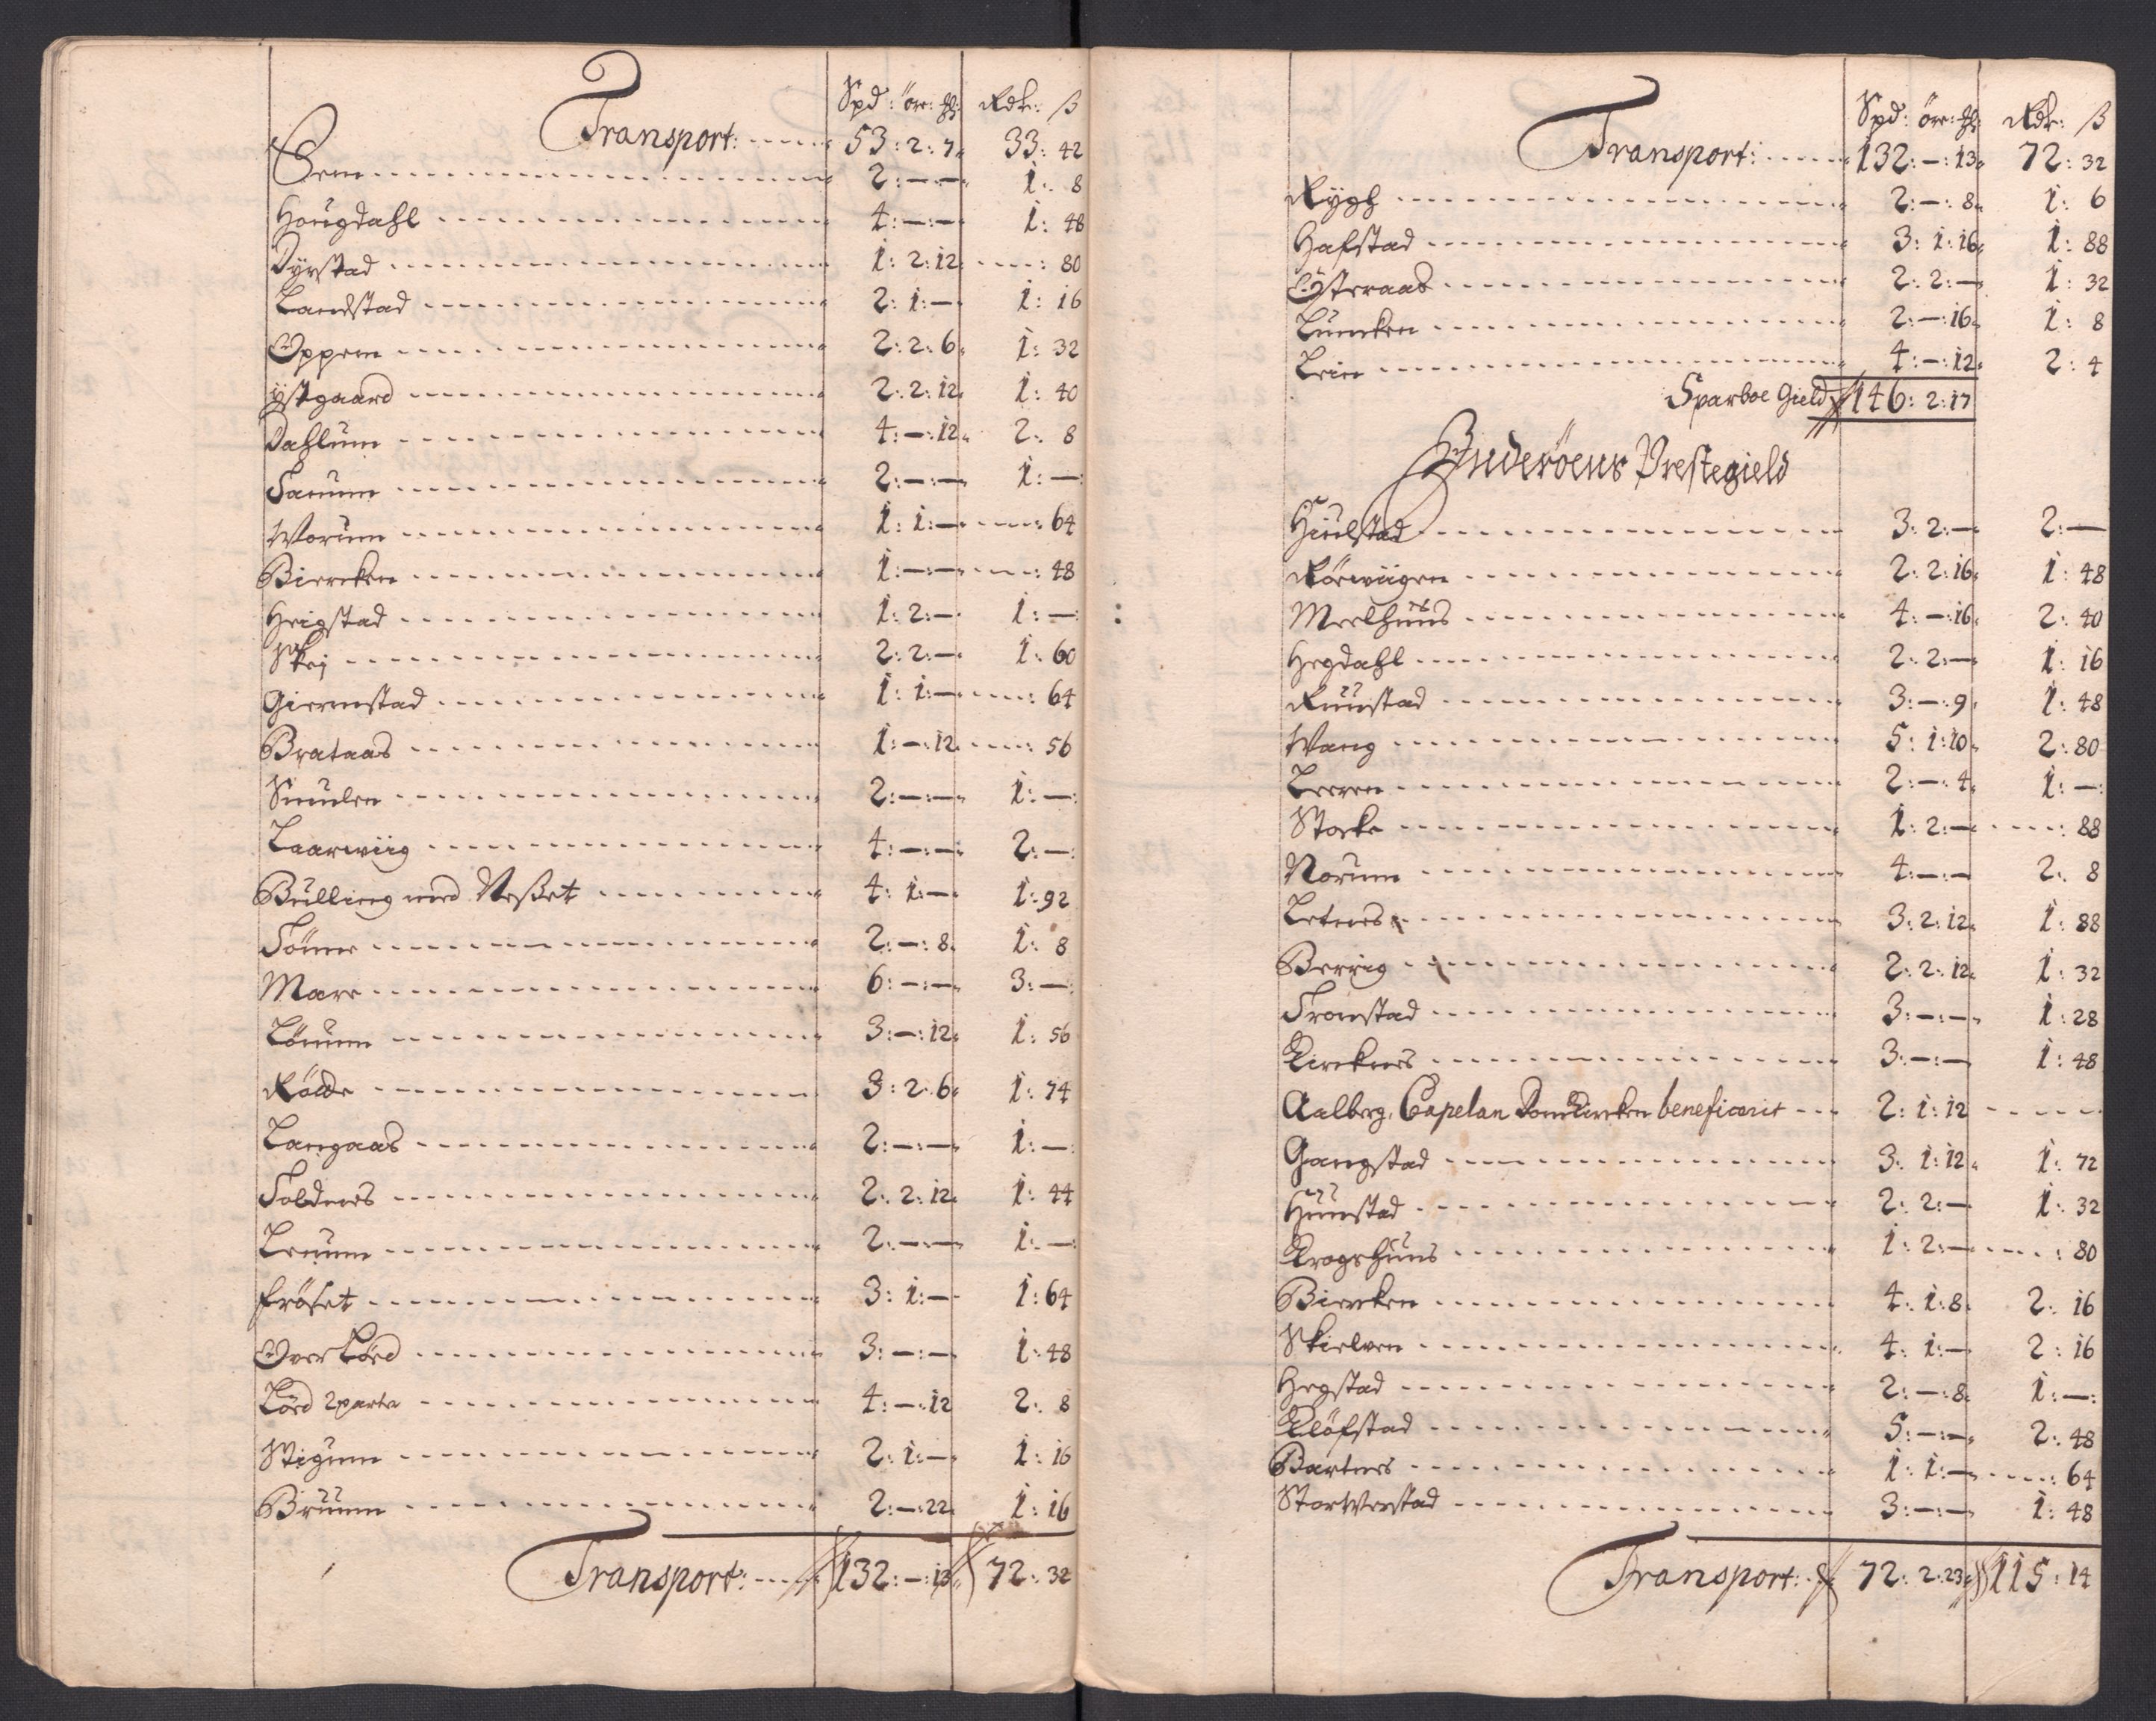 Spd: öre: Rdr: ß
Transport: 53: 2: 7 33: 42
2: — : — 1: 8
Hougdahl 4: — : — 1: 48
Dyrstad 1: 2: 12 80
Landstad 2: 1: — 1: 16
Oppem 2: 2: 6 1: 32
ystgaard 2: 2: 12 1: 40
Dahlum 4: — : 12 2: 8
Sanum 2: — : — 1: —
Worum 1: 1: — 64
Biercken 1: — : — 48
Heigstad 1: 2: — 1: —
Skej 2: 2: — 1: 60
Giermstad 1: 1: — 64
Brataas 1: — : 12 56
Smulen 2: — : — 1: —
Laarwiig 4: — : — 2: —
Bulling med Neßet 4: 1: — 1: 92
2: — : 8 1: 8
Mære 6: — : — 3: —
Lönum 3: — : 12 1: 56
Rödde 3: 2: 6 1: 74
Langaas 2: — : — 1: —
Foldnes 2: 2: 12 1: 44
Lenum 2: — : — 1: —
fröset 3: 1: — 1: 64
Over Lörd 3: — : — 1: 48
Lörd 2 parter 4: — : 12 2: 8
Stigum 2: 1: — 1: 16
Bruum 2: — : 22 1: 16
Transport: 132: — : 13 72: 32
Spd: öre: Rdr: ß
Transport: 132: — : 13 72: 32
Rygh 2: — : 8 1: 6
Hafstad 3: 1: 16 1: 88
Österaas 2: 2: — 1: 32
Luncken 2: — : 16 1: 8
Lein 4: — : 12 2: 4
Sparboe Gield 146: 2: 17
Inderöens Prestegield
Hiulstad 3: 2: — 2: —
Rörwiigen 2: 2: 16 1: 48
Meelhuus 4: — : 16 2: 40
Hegdahl 2: 2: — 1: 16
Ruustad 3: — : 9 1: 48
Wang 5: 1: 10 2: 80
Leeren 2: — : 4 1: —
Stocke 1: 2: — 88
Norum 4: — : — 2: 8
Letnes 3: 2: 12 1: 88
Berrig 2: 2: 12 1: 32
Tronstad 3: — : — 1: 28
Kircknes 3: — : — 1: 48
Aalberg, Capelan Domkircken beneficerit 2: 1: 12
Gangstad 3: 1: 12 1: 72
Huustad 2: 2: — 1: 32
Krogshuus 1: 2: — 80
Biercken 4: 1: 8 2: 16
Skielven 4: 1: — 2: 16
Hegstad 2: — : 8 1: —
Klöfstad 5: — : — 2: 48
Bartnes 1: 1: — 64
StorWerstad 3: — : — 1: 48
Transport: 72: 2: 23 115: 14